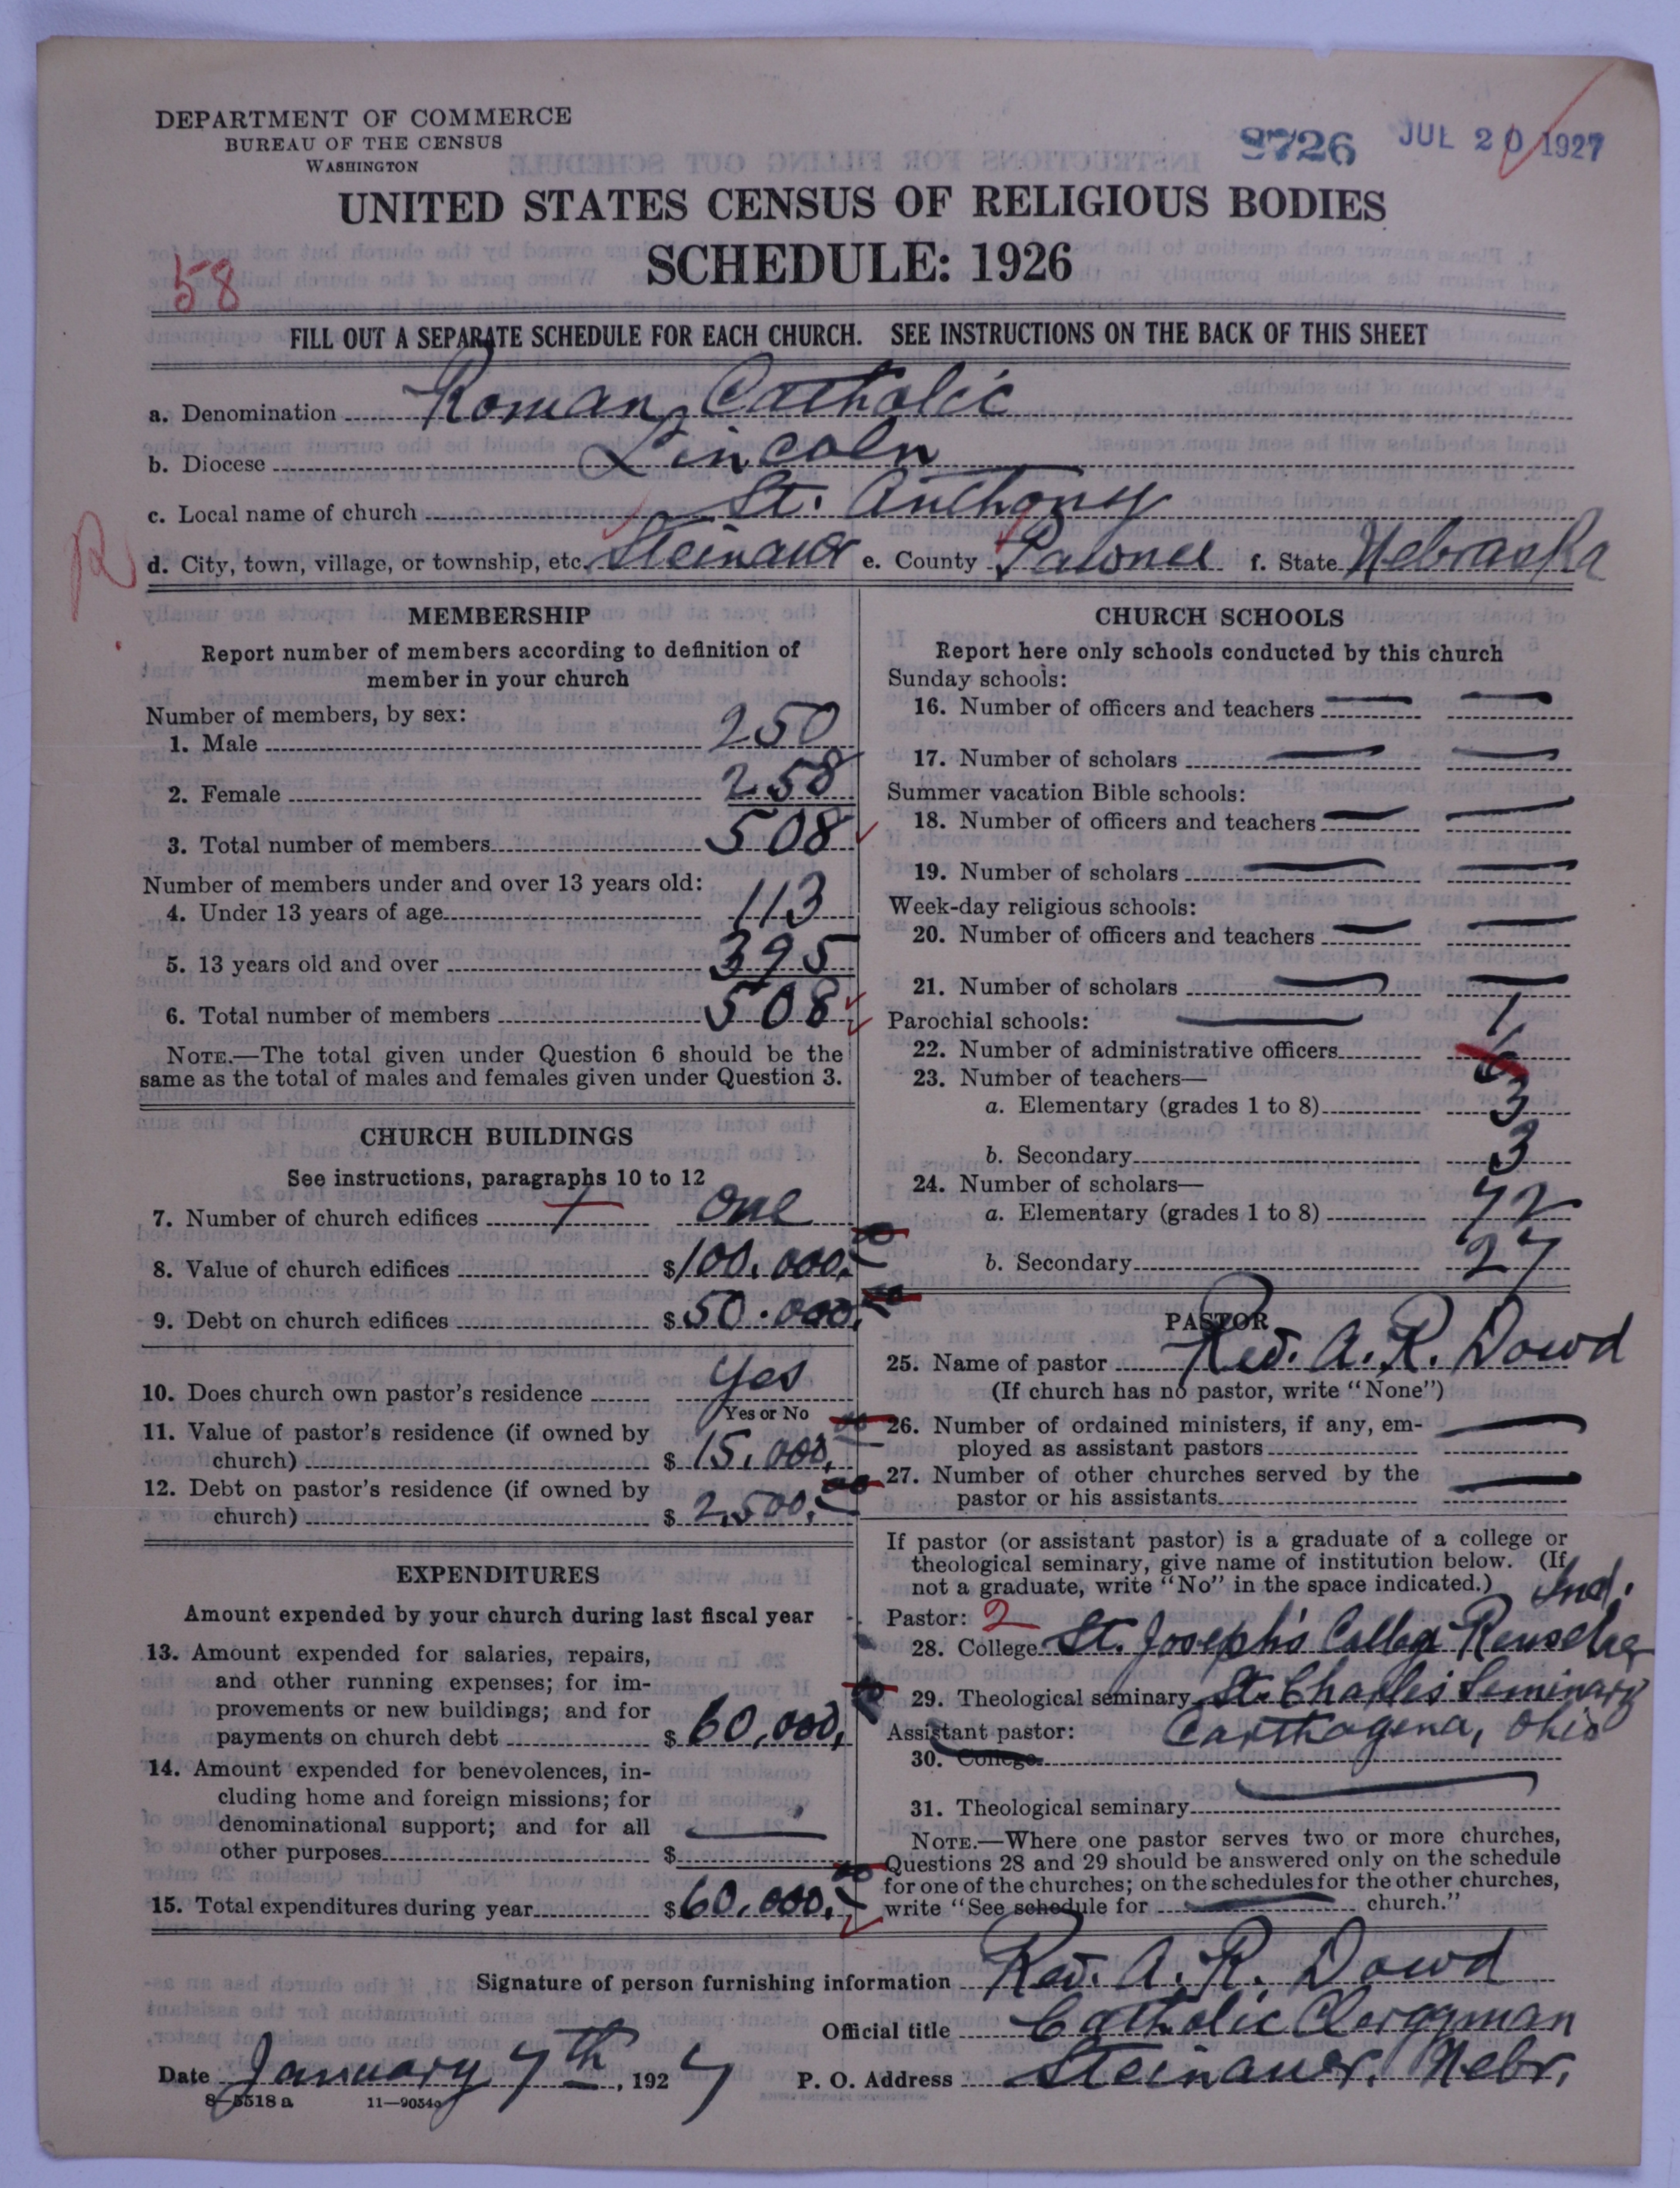 DEPARTMENT OF COMMERCE
BUREAU OF THE CENSUS
WASHINGTON
9726 JUL 20 1927
UNITED STATES CENSUS OF RELIGIOUS BODIES
SCHEDULE: 1926
58
FILL OUT A SEPARATE SCHEDULE FOR EACH CHURCH. SEE INSTRUCTIONS ON THE BACK OF THIS SHEET
a. Denomination Roman Catholic
b. Diocese Lincoln
c. Local name of church St. Anthony
R
d. City, town, village, or township, etc. Steinauer e. County Pawnee f. State Nebraska
MEMBERSHIP
Report number of members according to definition of
member in your church
Number of members, by sex:
1. Male 250
2. Female 258
3. Total number of members 508
Number of members under and over 13 years old:
4. Under 13 years of age 113
5. 13 years old and over 395
6. Total number of members 508
NOTE.—The total given under Question 6 should be the
same as the total of males and females given under Question 3.
CHURCH BUILDINGS
See instructions, paragraphs 10 to 12
7. Number of church edifices 1 One
8. Value of church edifices $100,000.00
9. Debt on church edifices $50.000.00
10. Does church own pastor's residence Yes
Yes or No
11. Value of pastor's residence (if owned by
church) $15,000.00
12. Debt on pastor's residence (if owned by
church) $2,500.00
EXPENDITURES
Amount expended by your church during last fiscal year
13. Amount expended for salaries, repairs,
and other running expenses; for im-
provements or new buildings; and for
payments on church debt $60,000.
14. Amount expended for benevolences, in-
cluding home and foreign missions; for
denominational support; and for all
other purposes $ —
15. Total expenditures during year $60,000.00
CHURCH SCHOOLS
Report here only schools conducted by this church
Sunday schools:
16. Number of officers and teachers — —
17. Number of scholars — —
Summer vacation Bible schools:
18. Number of officers and teachers — —
19. Number of scholars — —
Week-day religious schools:
20. Number of officers and teachers — —
21. Number of scholars — —
Parochial schools: — 1
22. Number of administrative officers
23. Number of teachers—
a. Elementary (grades 1 to 8) 3
b. Secondary 3
24. Number of scholars—
a. Elementary (grades 1 to 8) 72
b. Secondary 27
PASTOR
25. Name of pastor Rev. A. R. Dowd
(If church has no pastor, write "None")
26. Number of ordained ministers, if any, em-
ployed as assistant pastors —
27. Number of other churches served by the
pastor or his assistants —
If pastor (or assistant pastor) is a graduate of a college or
theological seminary, give name of institution below. (If
not a graduate, write "No" in the space indicated.) Ind.
Pastor: 2
28. College St. Joseph's College Renselaer
29. Theological seminary St. Charles Seminary
Assistant pastor: Carthagena, Ohio
30. College
31. Theological seminary —
NOTE.—Where one pastor serves two or more churches,
Questions 28 and 29 should be answered only on the schedule
for one of the churches; on the schedules for the other churches,
write "See schedule for — church."
Signature of person furnishing information Rev. A. R. Dowd
Official title Catholic Clergyman
Date January 7th, 1927 P. O. Address Steinauer, Nebr.
8—5518 a 11—9054a